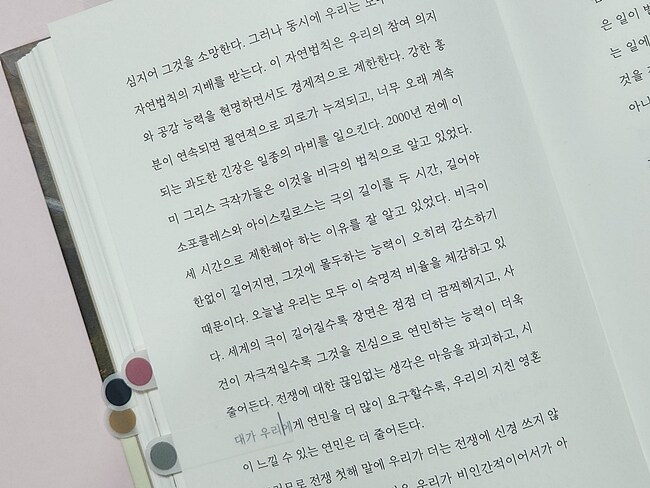 심지어 그것을 소망한다. 그러나 동시에 우리는 모두
자연법칙의 지배를 받는다. 이 자연법칙은 우리의 참여 의지
와 공감 능력을 현명하면서도 경제적으로 제한한다. 강한 흥
분이 연속되면 필연적으로 피로가 누적되고, 너무 오래 계속
되는 과도한 긴장은 일종의 마비를 일으킨다. 2000년 전에 이
미 그리스 극작가들은 이것을 비극의 법칙으로 알고 있었다.
소포클레스와 아이스킬로스는 극의 길이를 두 시간, 길어야
세 시간으로 제한해야 하는 이유를 잘 알고 있었다. 비극이
한없이 길어지면, 그것에 몰두하는 능력이 오히려 감소하기
때문이다. 오늘날 우리는 모두 이 숙명적 비율을 체감하고 있
다. 세계의 극이 길어질수록 장면은 점점 더 끔찍해지고, 사
건이 자극적일수록 그것을 진심으로 연민하는 능력이 더욱
줄어든다. 전쟁에 대한 끊임없는 생각은 마음을 파괴하고, 시
대가 우리에게 연민을 더 많이 요구할수록, 우리의 지친 영혼
이 느낄 수 있는 연민은 더 줄어든다.
전쟁 첫해 말에 우리가 더는 전쟁에 신경 쓰지 않
우리가 비인간적이어서가 아
은 일이
는 일에
것을
아니